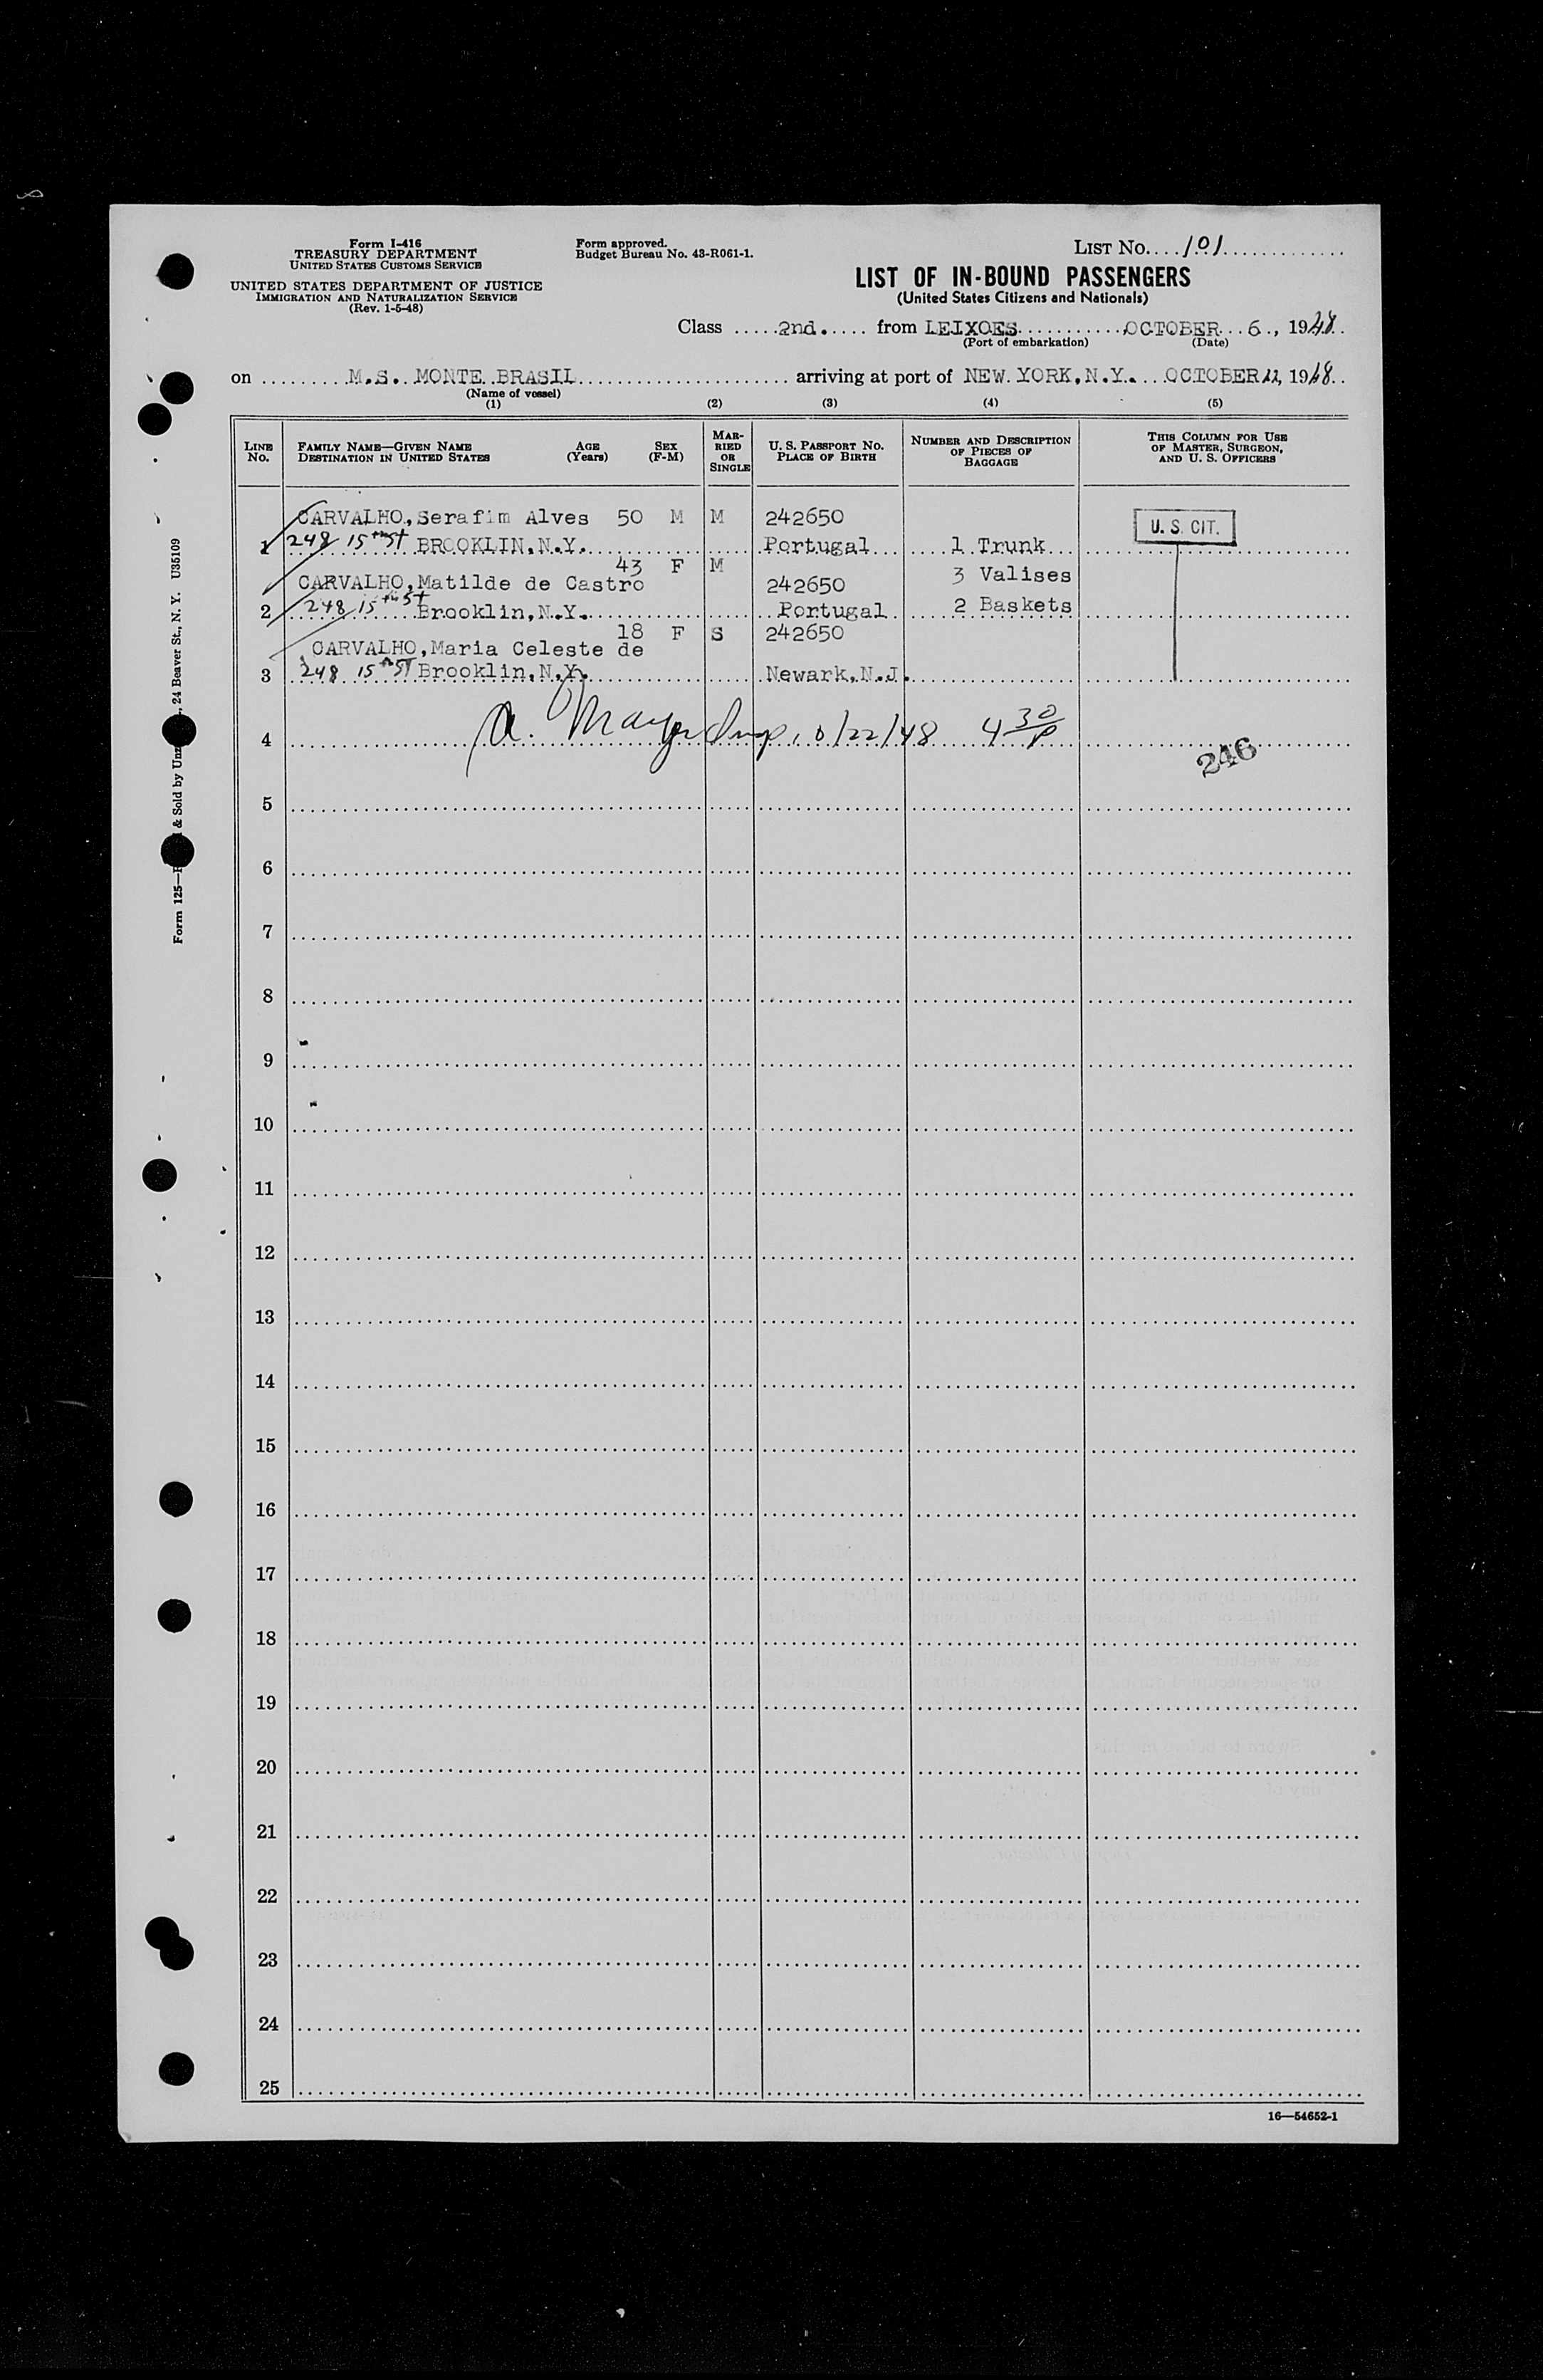 Form I-416
TREASURY DEPARTMENT
UNITED STATES CUSTOMS SERVICE
UNITED STATES DEPARTMENT OF JUSTICE
IMMIGRATION AND NATURALIZATION SERVICE
(Rev. 1-5-48)
Form approved.
Budget Bureau No. 43-R061-1.
LIST No. 101
LIST OF IN-BOUND PASSENGERS
(United States Citizens and Nationals)
Class 2nd. from LEIXOES OCTOBER 6, 1948
(Port of embarkation) (Date)
on M.S. MONTE BRASIL arriving at port of NEW YORK, N.Y. OCTOBER 22, 1948
(Name of vessel)
(1) (2) (3) (4) (5)
LINE No. FAMILY NAME—GIVEN NAME DESTINATION IN UNITED STATES AGE (Years) SEX (F-M) MARRIED OR SINGLE U. S. PASSPORT NO. PLACE OF BIRTH NUMBER AND DESCRIPTION OF PIECES OF BAGGAGE THIS COLUMN FOR USE OF MASTER, SURGEON, AND U. S. OFFICERS
CARVALHO, Serafim Alves 50 M M 242650 U. S. CIT.
1 248 15th St BROOKLIN, N.Y. Portugal 1 Trunk
43 F M 3 Valises
CARVALHO, Matilde de Castro 242650
2 248 15th St Brooklin, N.Y. Portugal 2 Baskets
18 F S 242650
CARVALHO, Maria Celeste de
3 248 15th ST Brooklin, N.Y. Newark, N.J.
4 A. Insp. 10/22/48 4 30 P
246
5
6
7
8
9
10
11
12
13
14
15
16
17
18
19
20
21
22
23
24
25
16—54652-1
Form 125— & Sold by 24 Beaver St., N. Y. U35109